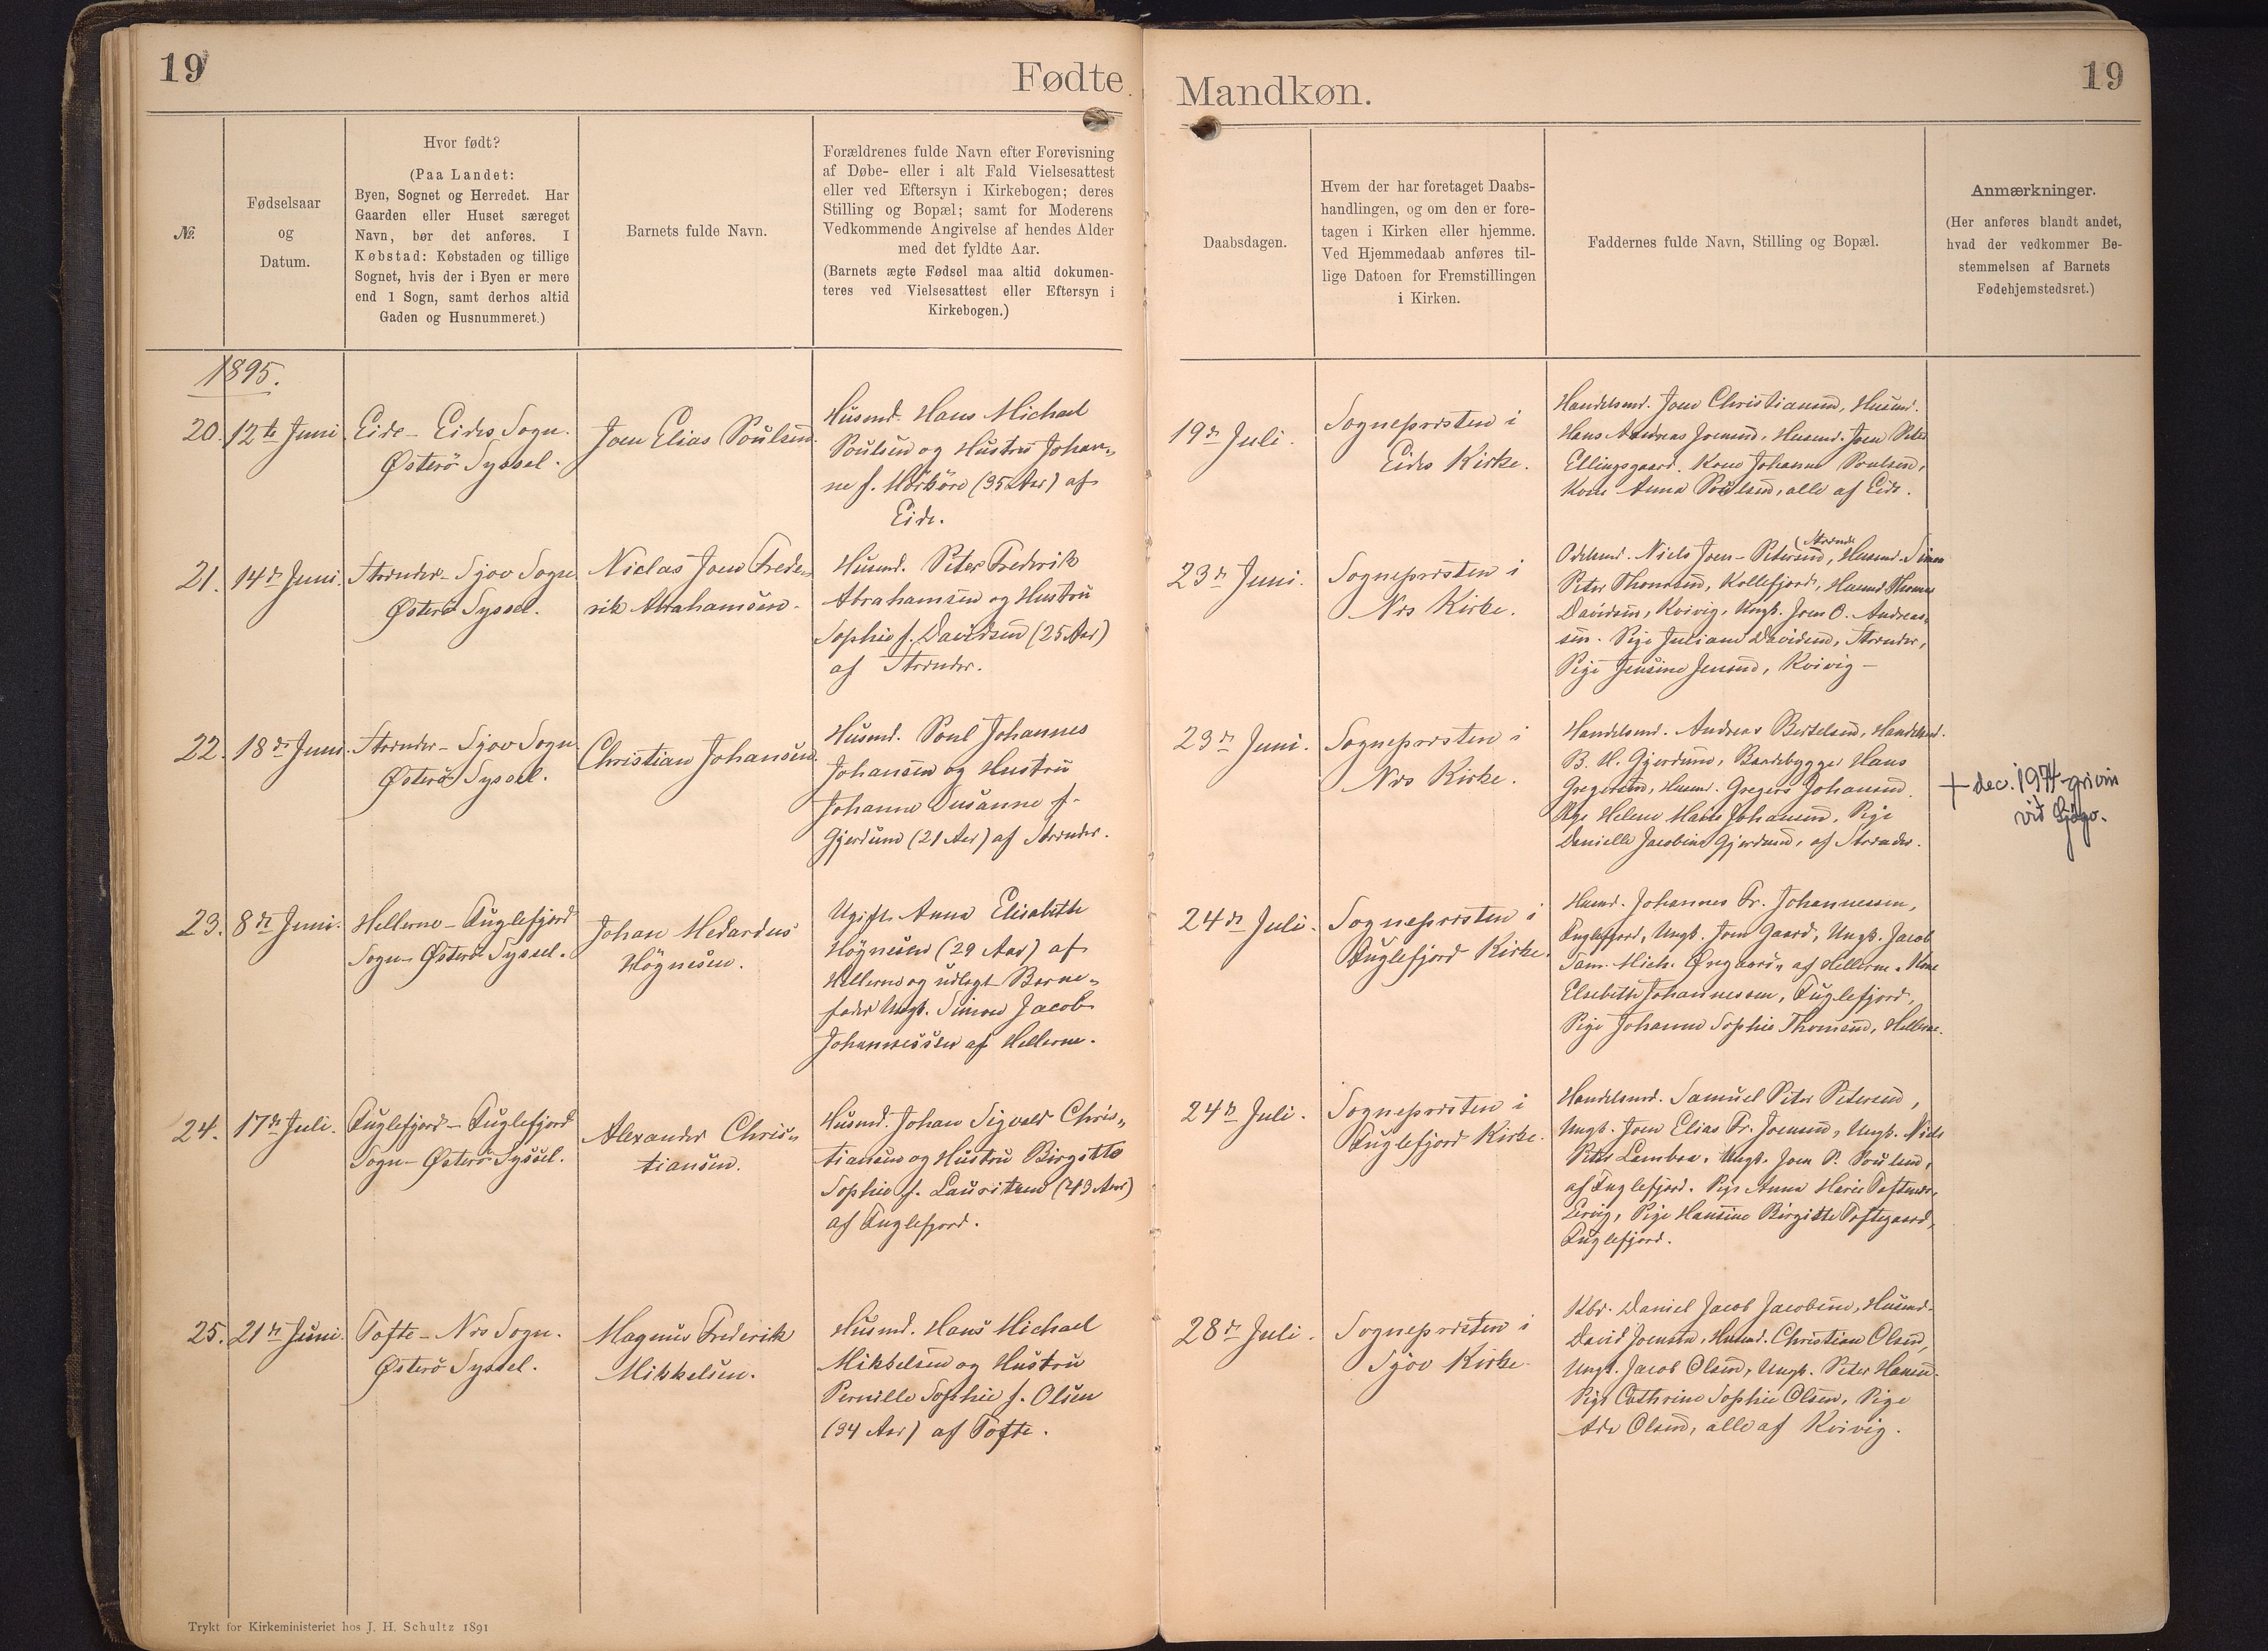 19
Fødte
Mandkøn.
19
№
Fødselsaar
og
Datum.
Hvor født?
(Paa Landet:
Byen, Sognet og Herredet. Har
Gaarden eller Huset særeget
Navn, bør det anføres. I
Købstad: Købstaden og tillige
Sognet, hvis der i Byen er mere
end 1 Sogn, samt derhos altid
Gaden og Husnummeret.)
Barnets fulde Navn.
Forældrenes fulde Navn efter Forevisning
af Døbe- eller i alt Fald Vielsesattest
eller ved Eftersyn i Kirkebogen; deres
Stilling og Bopæl; samt for Moderens
Vedkommende Angivelse af hendes Alder
med det fyldte Aar.
(Barnets ægte Fødsel maa altid dokumen-
teres ved Vielsesattest eller Eftersyn i
Kirkebogen.)
Daabsdagen.
Hvem der har foretaget Daabs-
handlingen, og om den er fore-
tagen i Kirken eller hjemme.
Ved Hjemmedaab anføres til-
lige Datoen for Fremstillingen
i Kirken.
Faddernes fulde Navn, Stilling og Bopæl.
Anmærkninger.
(Her anføres blandt andet,
hvad der vedkommer Be-
stemmelsen af Barnets
Fødehjemstedsret.)
1895.
20.
12te Juni
Eide - Eides Sogn.
Østerö Syssel.
Joen Elias Poulsen.
Husmd. Hans Michael
Poulsen og Hustru Johan-
ne f. Mörköre (35 Aar) af
Eide.
19de Juli.
Sognepresten i
Eides Kirke.
Handelsmd. Joen Christiansen, Husmd.
Hans Andreas Joensen, Husmd. Joen Peter
Ellingsgaard. Kone Johanne Poulsen,
Kone Anna Poulsen, alle af Eide.
21.
14de Juni.
Strender - Sjov Sogn
Østerö Syssel.
Niclas Joen Frede-
rik Abrahamsen.
Husmd. Peter Frederik
Abrahamsen og Hustru
Sophie f. Davidsen (25 Aar)
af Strender.
23de Juni.
Sognepresten i
Nes Kirke.
Odelsmd. Niels Joen Petersen, Husmd. Simon
Peter Thomsen, Kollefjord, Husmd. Thomas
Davidsen, Kvivig, Ungk. Joen O. Andreas-
sen. Pige Juliane Davidsen, Strender,
Pige Jensine Jensen, Kvivig -
22.
18de Juni.
Strender - Sjov Sogn.
Østerö Syssel.
Christian Johansen.
Husmd. Poul Johannes
Johansen og Hustru
Johanne Susanne f.
Gjerdum (21 Aar) af Strender.
23de Juni.
Sognepresten i
Nes Kirke.
Handelsmd. Andreas Bertelsen, Handelsmd.
B. H. Gjerdum, Baadebygger Hans
Gregersen, Husmd. Gregers Johansen.
Pige Helene Marie Johansen, Pige
Danielle Jacobine Gjerdum, af Strender.
+ dec. 1974 grivin
við Sjógv.
23.
8de Juni.
Hellerne - Fuglefjord
Sogn - Østerö Syssel.
Johan Medardus
Högnesen.
Ugift Anna Elisabeth
Högnesen (29 Aar) af
Hellerne og udlagt Barne-
fader Ungk. Simon Jacob
Johannessen af Hellerne.
24de Juli.
Sognepresten i
Fuglefjord Kirke.
Husmd. Johannes Fr. Johannessen,
Fuglefjord, Ungk. Joen Gaard, Ungk. Jacob
Sam. Mich. Øregaard, af Hellerne. Kone
Elsebeth Johannessen, Fuglefjord,
Pige Johanne Sophie Thomsen, Hellerne.
24.
17de Juli.
Fuglefjord - Fuglefjord
Sogn - Østerö Syssel.
Alexander Chris-
tiansen.
Husmd. Johan Sigvald Chris-
tiansen og Hustru Birgitte
Sophie f. Lauritsen (43 Aar)
af Fuglefjord.
24de Juli.
Sognepresten i
Fuglefjord Kirke.
Handelsmd. Samuel Peter Petersen,
Ungk. Joen Elias Fr. Joensen, Ungk. Niels
Peter Lambaa, Ungk. Joen P. Poulsen,
af Fuglefjord. Pige Anna Marie
Lervig, Pige Hansine Birgitte Toftegaard,
Fuglefjord.
25.
21de Juni.
Tofte - Nes Sogn.
Østerö Syssel.
Magnus Frederik
Mikkelsen.
Husmd. Hans Michael
Mikkelsen og Hustru
Pernille Sophie f. Olsen
(34 Aar) af Tofte.
28de Juli.
Sognepresten i
Sjov Kirke.
Kbr. Daniel Jacob Jacobsen, Husmd.
David Joensen, Husmd. Christian Olsen,
Ungk. Jacob Olsen, Ungk. Peter Hansen.
Pige Cathrine Sophie Olsen, Pige
Ada Olsen, alle af Kvivig.
Trykt for Kirkeministeriet hos J. H. Schultz 1891